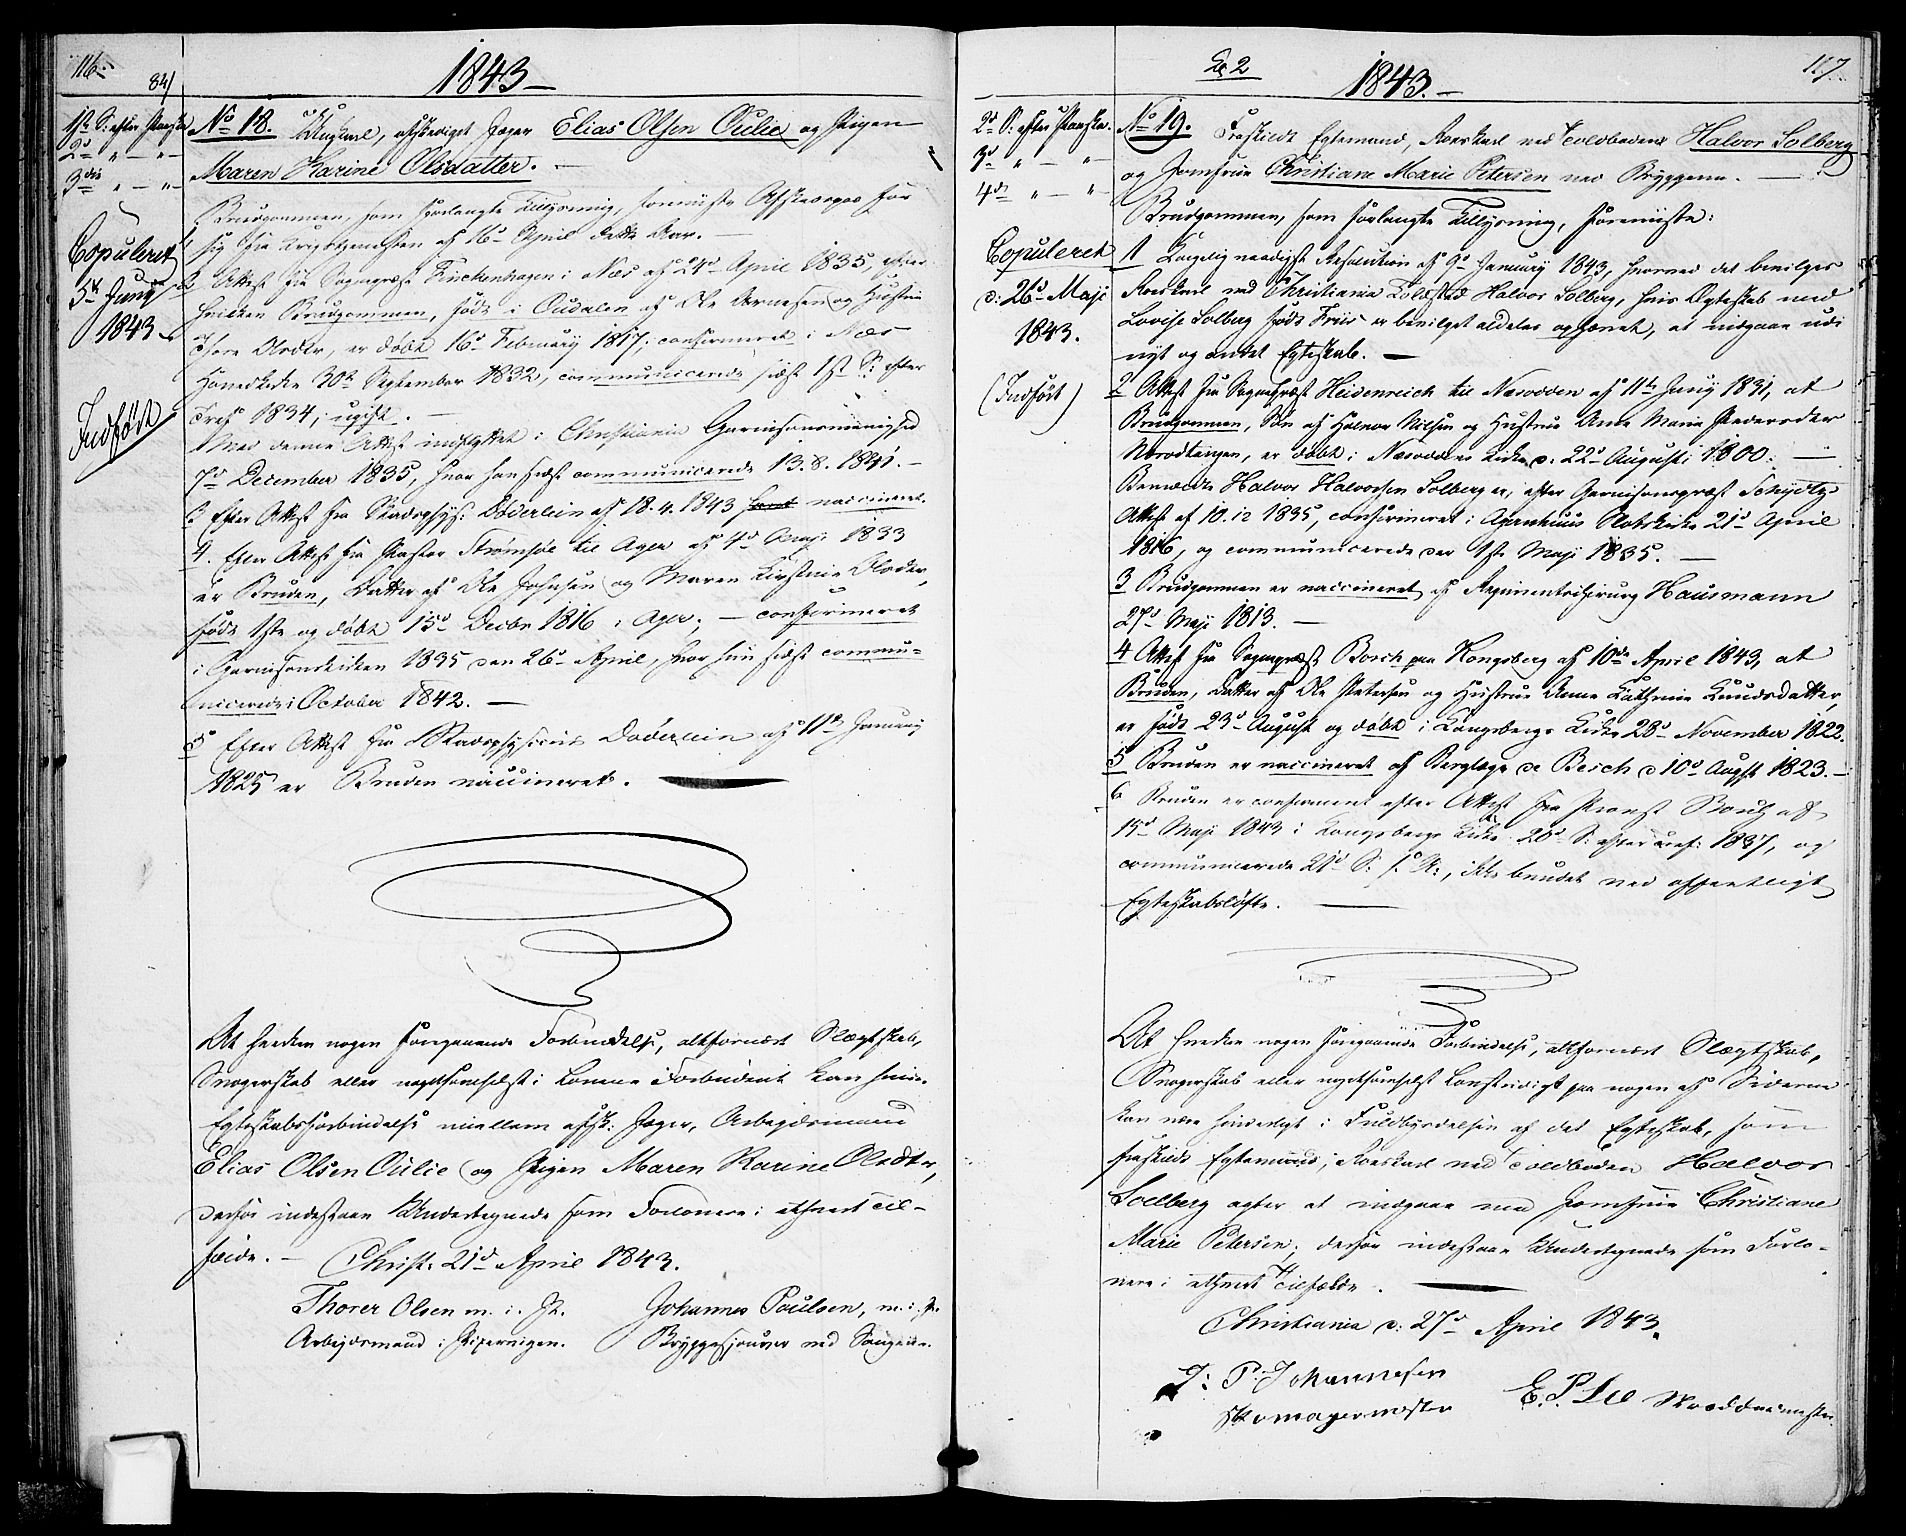 116.
84/
1843
1ste S: efter Paaske
2d " — " —
3die " — " —
Copuleret
5te Juny
1843
Indført
No 18. Ungkarl, afskediget Jæger Elias Olsen Oulie og Pigen
Maren Karine Olsdatter. —
Brudgommen, som forlangte Tillysning, foreviiste Afskedspas for
sig fra Krigstjenesten af 16de April dette Aar. —
2 Attest fra Sognepræst Finckenhagen i Næs af 24de April 1835, efter
hvilken Brudgommen, født i Oudalen af Ole Arnesen og Hustrue
Thore Olsdtr, er døbt 16de February 1817, confirmeret i Næs
Hovedkirke 30te September 1832, communicerede sidst 1ste S: efter
Tref: 1834, ugift. —
Med denne Attest indflyttet i Christiania Garnisonsmenighed
7de December 1835, hvor han sidst communicerede 13.8.1841. —
3 Efter Attest fra Stadsphys: Døderlein af 18.4.1843 vaccineret.
4. Efter Attest fra Pastor Strømsøe til Ager af 4de Maji 1833
er Bruden, Datter af Ole Johnsen og Maren Kirstine Olsdtr,
født 1ste og døbt 15de Decbr 1816 i Ager; — confirmeret
i Garnisonskirken 1835 den 26de April, hvor hun sidst commu-
nicerede i October 1842. —
5 Efter Attest fra Stadsphysicus Døderlein af 11te January
1825 er Bruden vaccineret. —
At hverken nogen foregaaende Forbindelse, altfornært Slægtskab,
Svogerskab eller nogetsomhelst i Lovene Forbudent kan hindre
Egteskabsforbindelse mellem afsk: Jæger, Arbejdsmand
Elias Olsen Oulie og Pigen Maren Karine Olsdtr,
derfor indestaae Undertegnede som Forlovere i ethvert Til-
fælde. — Christ: 21de April 1843.
Thorer Olsen m. i. P.
Arbejdsmand i Pipervigen.
Johannes Poulsen, m. i. P.
Bryggesjouer ved Saugene.
117.
1843. —
2d S: efter Paaske.
3d " — "
4de " — "
Copuleret
d: 26de Maji
1843.
(Indført)
No 19. Fraskildt Egtemand, Roerskarl ved Toldboden Halvor Solberg
og Jomfrue Christiane Marie Petersen ved Bryggerne. —
Brudgommen, som forlangte Tillysning, foreviiste:
1 Kongelig naadigst Resolution af 9de January 1843, hvorved det bevilges
Roerskarl ved Christiania Toldsted Halvor Solberg, hvis Egteskab med
Lovise Solberg født Friis er bevilget aldeles ophævet, at indgaae udi
nyt og andet Egteskab. —
2 Attest fra Sognepræst Heidenreich til Næsodden af 11te Juny 1831, at
Brudgommen, Søn af Halvor Nilsen og Hustrue Anne Maria Pedersdtr
Nordstangen, er døbt i Næsoddens Kirke d. 22de August 1800. —
Bemeldte Halvor Halvorsen Solberg er, efter Garnisonspræst Schydtz's
Attest af 10.12 1835, confirmeret i Agershuus Slotskirke 21de April
1816, og communicerede der 1ste Maji 1835. —
3 Brudgommen er vaccineret af Regimentschirurg Hausmann
27de Maji 1813. —
4 Attest fra Sognepræst Bosch paa Kongsberg af 10de April 1843, at
Bruden, Datter af Ole Petersen og Hustrue Anne Kathrine Knudsdatter,
er født 23de August og døbt i Kongsbergs Kirke 28de November 1822.
5 Bruden er vaccineret af Berglæge de Besch d 10de Augst 1823. —
6 Bruden er confirmeret efter Attest fra Provst af
15de Maji 1843 i Kongsbergs Kirke 20de S: efter Tref: 1837, og
communicerede 21de S: f. A:, ikke bundet ved offentligt
Egteskabsløfte. —
At hverken nogen foregaaende Forbindelse, altfornært Slægtskab,
Svogerskab eller nogetsomhelst Lovstridigt paa nogen af Siderne
kan være hinderligt i Fuldbyrdelsen af det Egteskab, som
fraskildt Egtemand, Roerskarl ved Toldboden Halvor
Solberg agter at indgaae med Jomfrue Christiane
Marie Petersen, derfor indestaae Undertegnede som Forlo-
vere i ethvert Tilfælde. —
Christiania d: 27de April 1843.
P. Johannesen
Skomagermester
E. P. Lie Skræddermester